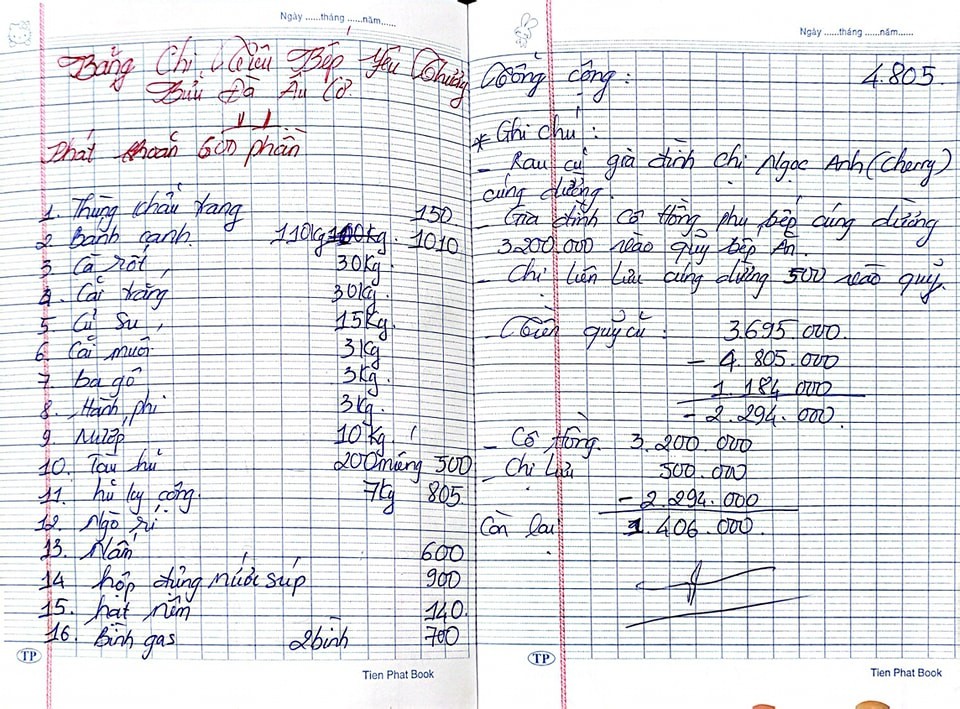 Ngày ......tháng ......năm......
Bảng Chi Tiêu Bếp Yêu Thương
Bửu Đà Ấu Cơ
Phát khoản 600 phần
1. Thùng khẩu trang 150
2 Bánh canh. 110kg 100kg. 1010
3 Cà rốt, 30Kg.
4. Cải trắng 30Kg.
5 Củ Su, 15Kg.
6. Cải muối 3Kg
7. ba gô 3Kg.
8. Hành, phi 3Kg.
9. Nướ 10Kg.
10. Tàu hủ 200miếng 500
11. hủ ky cộng. 7Kg 805
12. Ngò rí
13. Nấm 600
14 hộp đựng nước súp 900
15. hạt nêm 140.
16. Bình gas 2bình 700
TP
Tien Phat Book
Ngày ......tháng ......năm......
Tổng cộng: 4.805.
* Ghi chú:
- Rau củ gia đình chị Ngọc Anh (Cherry)
cúng dường.
- Gia đình cô Hồng phụ bếp cúng dường
3.200.000 vào quỹ bếp Ăn.
- Chị Liên Lưu cúng dường 500 vào quỹ.
- Tiền quỹ cũ: 3.695.000.
- 4.805.000
1.184.000
- 2.294.000.
- Cô Hồng. 3.200.000
- Chị Lưu 500.000
- 2.294.000
Còn lại 1.406.000.
TP
Tien Phat Book